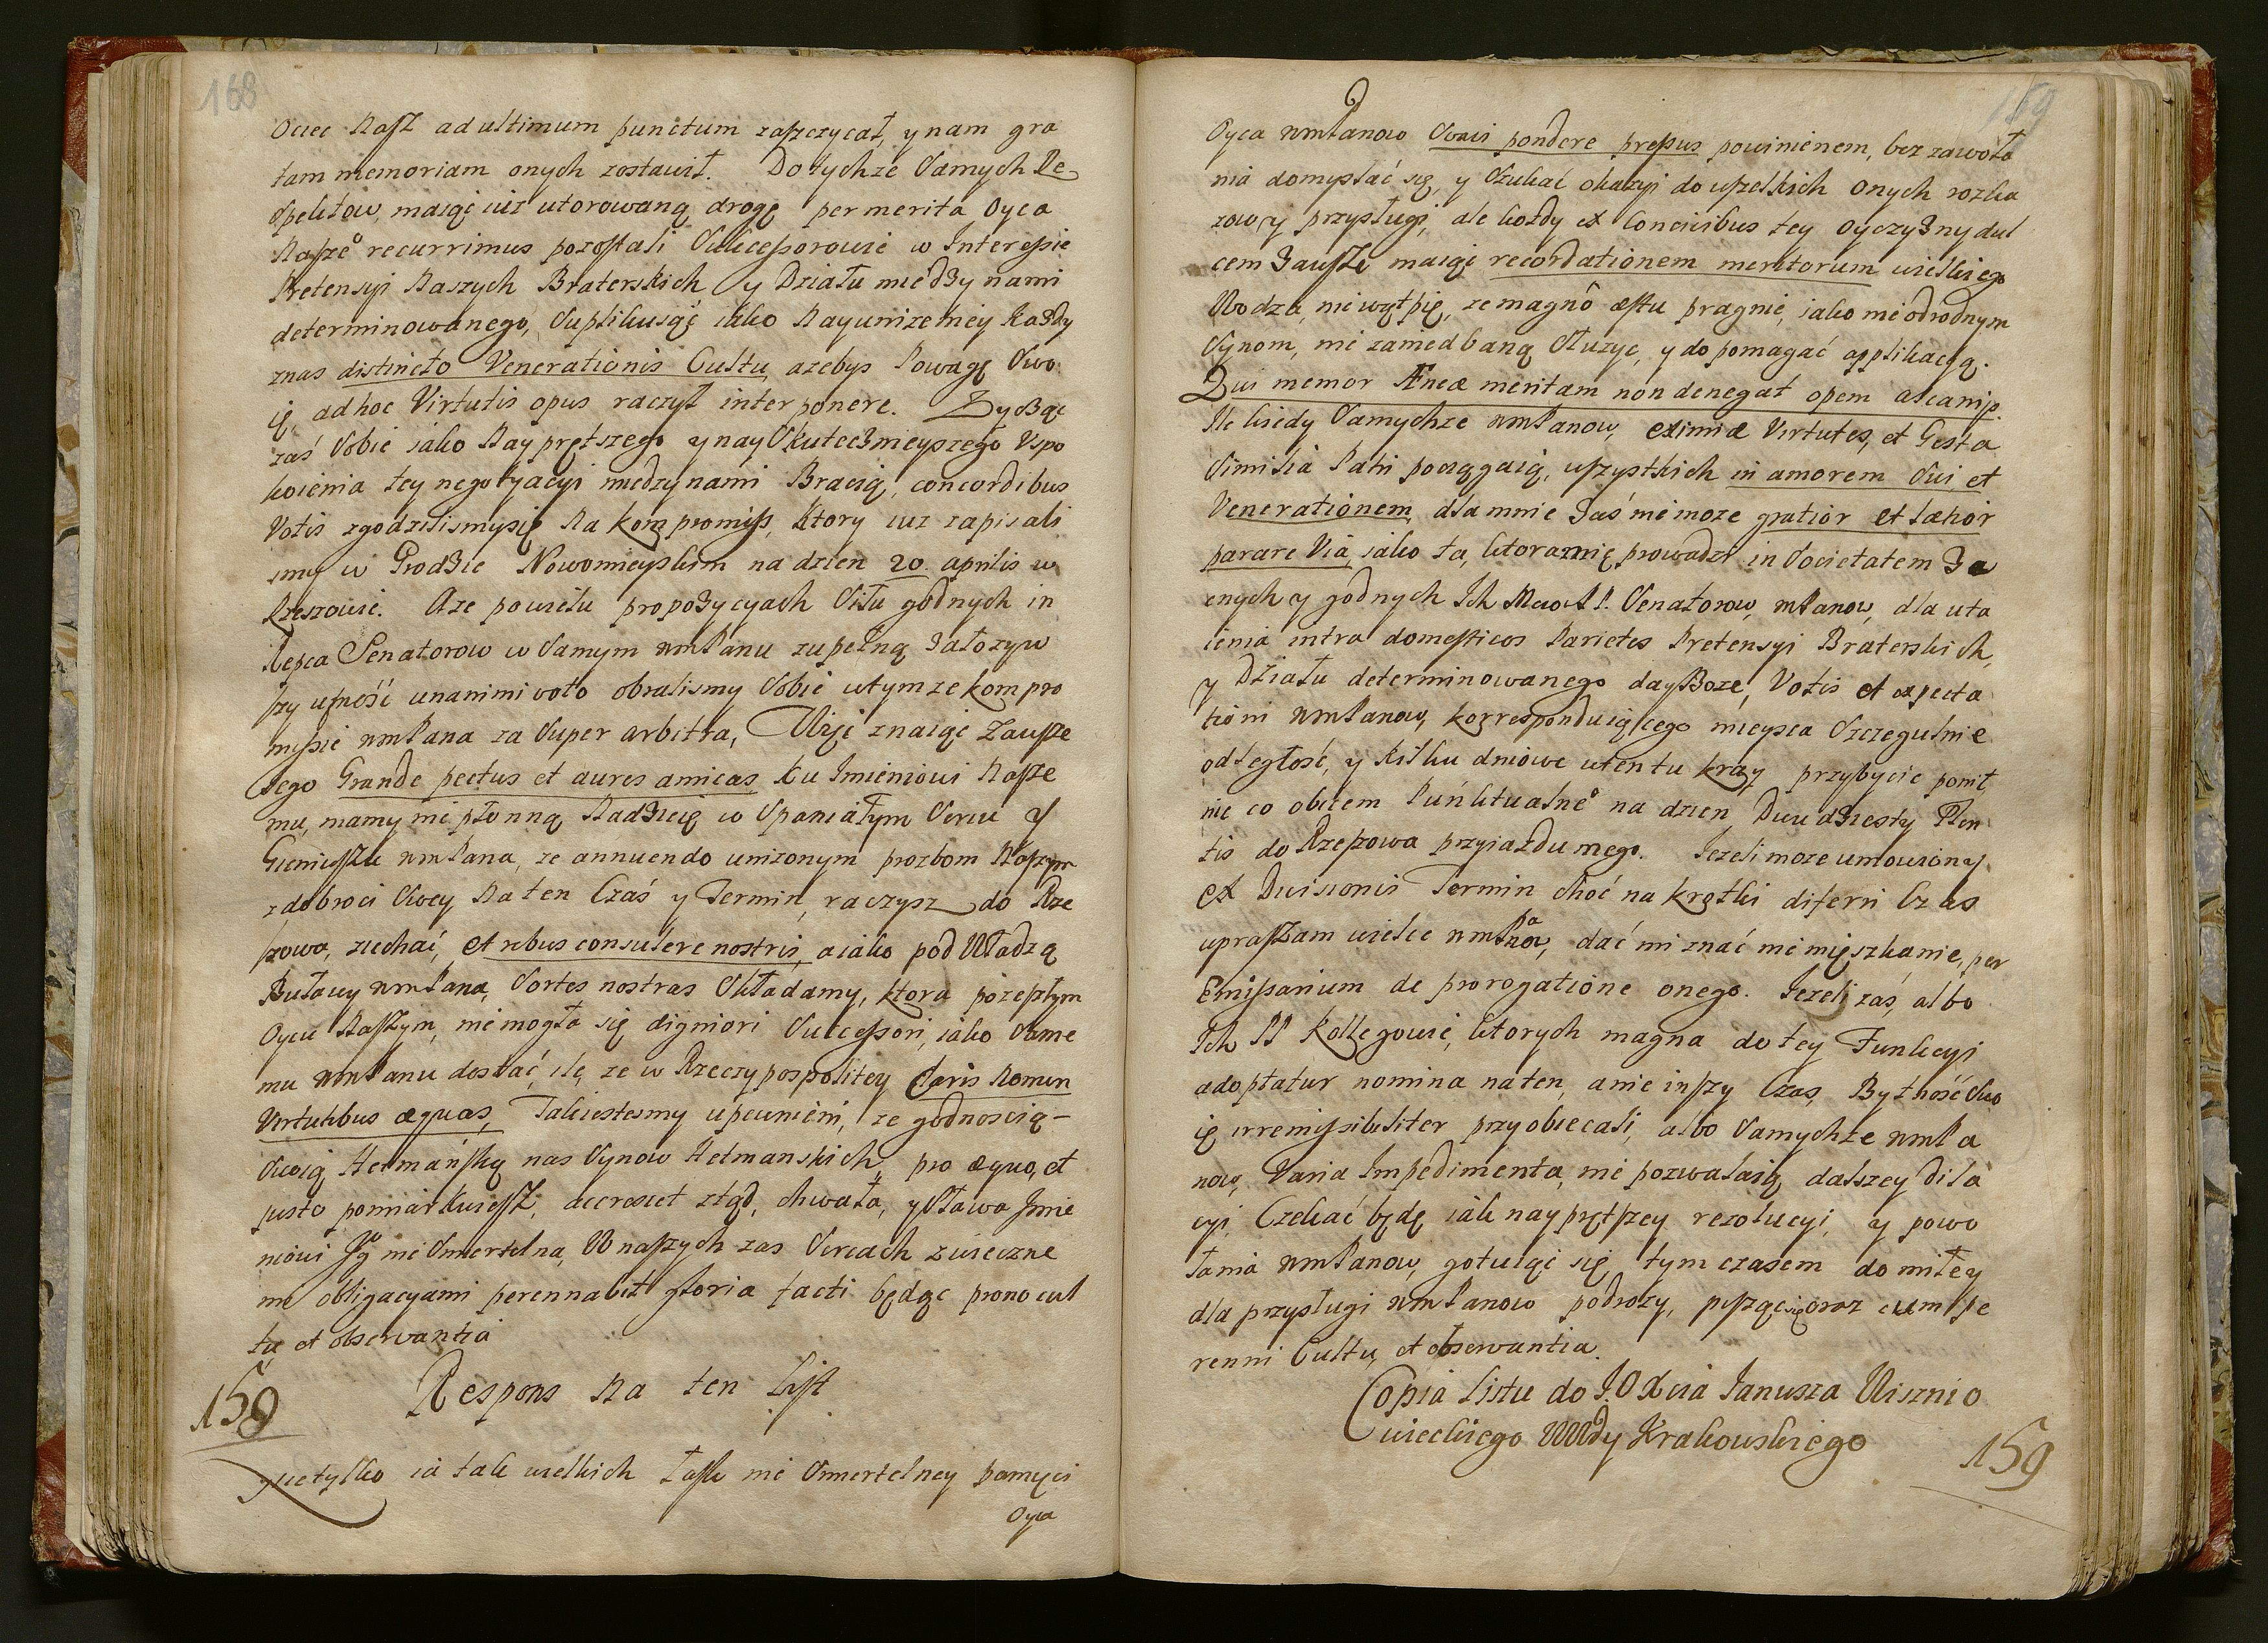 168
Ociec Nasz ad ultimum punctum zaszczycał, y nam gra
tam memoriam onych zostawił. Do tychże Samych Re
spektow, maiąc iuż utorowaną drogę per merita Oyca
Naszeo recurrimus pozostali Sukcessorowie w Interessie
Pretensyi Naszych Braterskich y Działu między nami
determinowanego, Suplikuiąc iako Nayuniżeniey każdy
z nas distincto Venerationis Cultu, ażebyś Powagę Swo
ię, ad hoc Virtutis opus raczył interponere. Życząc
zaś Sobie iako Nayprętszego y naySkutecznieyszego Uspo
koienia tey negotyacyi między nami Bracią, concordibus
Votis zgodzilismysię na kompromiss, ktory iuż zapisali
smy w Grodzie Nowomieyskim na dzien 20. aprilis w
Rzeszowie. A że po wielu propozycyach Situ godnych in
Senatorow w Samym wmPanu zupełną założyw
szy ufność unanimi voto obralismy Sobie w tymże kompro
missie wmPana za Super arbitra, Wiję znaiąc Zawsze
tego Grande pectus et aures amicas ku Imieniowi Nasze
mu, mamy nie płonną Nadzieię w Spaniałym Sercu y
Genieuszu wmPana, że annuendo uniżonym prozbom Naszym
z dobroci Swey na ten Czas y Termin, raczysz do Rze
szowa, ziechać, et rebus consulere nostris, a iako pod Władzą
Buławy wmPana, Sortes nostras Składamy, ktora po zeszłym
Oycu Naszym, nie mogła się digniori Successori, iako Same
mu wmPanu dostać, ile, że w Rzeczypospolitey Claris Nomen
Virtutibus æquas, Tak iestesmy upewnieni, że godnoscią
Swoią Hetmańską nas Synow Hetmanskich, pro æquo, et
justo pomiarkuiesz, accrescet ztąd, chwała, y Sława Imie
niowi Jgo nie Smiertelna, W naszych zas Sercach z wieczne
mi obligacyami perennabit gloria facti będąc prono cul
tu et observantia
158 Respons na ten List
Nie tylko ia tak wielkich łask nie Smiertelney pamięci
Oyca
159
Oyca wmPanow Swaui pondere pressus powinienem, bez zawoła
nia domyslać się, y Szukać okazyi do wszelkich onych rozka
zow, y przysługi, ale każdy ex Concivibus tey Oyczyzny dul
cem Zawsze maiąc recordationem meritorum wielkiego
Wodza, nie wątpię, że magnô æstu pragnie, iako nieodrodnym
Synom, nie zaniedbaną Służyć, y do pomagać applikacyą.
Qui memor Æneæ meritam non denegat opem ascanijs.
Ale kiedy Samychże wmPanow, eximiæ Virtutes, et Gesta
Similia Patri pociągaią, wszystkich in amorem Sui, et
Venerationem, dla mnie zaś nie może gratior et lætior
parare Via, iako ta, ktora mię prowadzi in Societatem Za
cnych y godnych Ich Senatorow, mPanow, dla uta
ienia intra domesticos Parietes Pretensyi Braterskich,
y Działu determinowanego day Boże, Votis et expecta
tioni wmPanow, korresponduiącego mieysca Szczegulnie
odległość, y kilku dniowe w tentu kray przybycie pomł
nie co obiciem Punktualneo na dzien Dwudziesty
tis do Rzeszowa przyiazdu mego. Ieżeli może umowiony
ex Divisionis Termin choć na krotki diferri Czas
upraszam wielce wmPanow, dać mi znać nie mięszkanie, per
Emissarium de prorogatione onego. Ieżeli zaś, albo
Ich PP Kollegowie, ktorych magna do tey Funkcyi
adoptatur nomina na ten, a nie inszy Czas, Bytność Swo
ię irremissibiliter przyobiecali, albo Samychże wmPa
now, Varia Impedimenta, nie pozwalaią, dalszey dila
cyi, Czekać będę iak nayprętszey rezolucyi, y powo
łania wmPanow, gotuiąc się tym czasem do miłey
dla przysługi wmPanow podrozy, pisząc się oraz cum pe
renni Cultu, et observantia.
Copia Listu do J.O Xcia Janusza Wisznio
wieckiego WWdy Krakowskiego
159